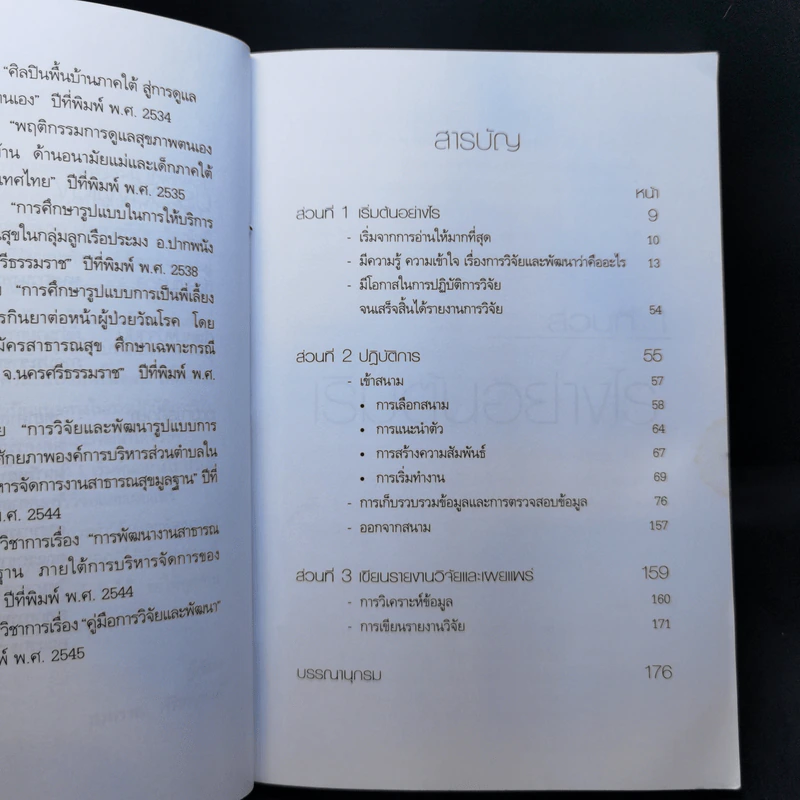 “ศิลปินพื้นบ้านภาคใต้ สู่การดูแล
ปีที่พิมพ์ พ.ศ. 2534
“พฤติกรรมการดูแลสุขภาพตนเอง
ด้านอนามัยแม่และเด็กภาคใต้
ปีที่พิมพ์ พ.ศ. 2535
“การศึกษารูปแบบในการให้บริการ
สุขในกลุ่มลูกเรือประมง อ.ปากพนัง
รีธรรมราช” ปีที่พิมพ์ พ.ศ. 2538
“การศึกษารูปแบบการเป็นพี่เลี้ยง
รกินยาต่อหน้าผู้ป่วยวัณโรค โดย
มัครสาธารณสุข ศึกษาเฉพาะกรณี
จ.นครศรีธรรมราช” ปีที่พิมพ์ พ.ศ.
ย “การวิจัยและพัฒนารูปแบบการ
ศักยภาพองค์การบริหารส่วนตำบลใน
หารจัดการงานสาธารณสุขมูลฐาน” ปีที่
พ.ศ. 2544
วิชาการเรื่อง “การพัฒนางานสาธารณ
ฐาน ภายใต้การบริหารจัดการของ
ปีที่พิมพ์ พ.ศ. 2544
วิชาการเรื่อง “คู่มือการวิจัยและพัฒนา”
พ์ พ.ศ. 2545
สารบัญ
หน้า
ส่วนที่ 1 เริ่มต้นอย่างไร 9
- เริ่มจากการอ่านให้มากที่สุด 10
- มีความรู้ ความเข้าใจ เรื่องการวิจัยและพัฒนาว่าคืออะไร 13
- มีโอกาสในการปฏิบัติการวิจัย
จนเสร็จสิ้นได้รายงานการวิจัย 54
ส่วนที่ 2 ปฏิบัติการ 55
- เข้าสนาม 57
• การเลือกสนาม 58
• การแนะนำตัว 64
• การสร้างความสัมพันธ์ 67
• การเริ่มทำงาน 69
- การเก็บรวบรวมข้อมูลและการตรวจสอบข้อมูล 76
- ออกจากสนาม 157
ส่วนที่ 3 เขียนรายงานวิจัยและเผยแพร่ 159
- การวิเคราะห์ข้อมูล 160
- การเขียนรายงานวิจัย 171
บรรณานุกรม 176